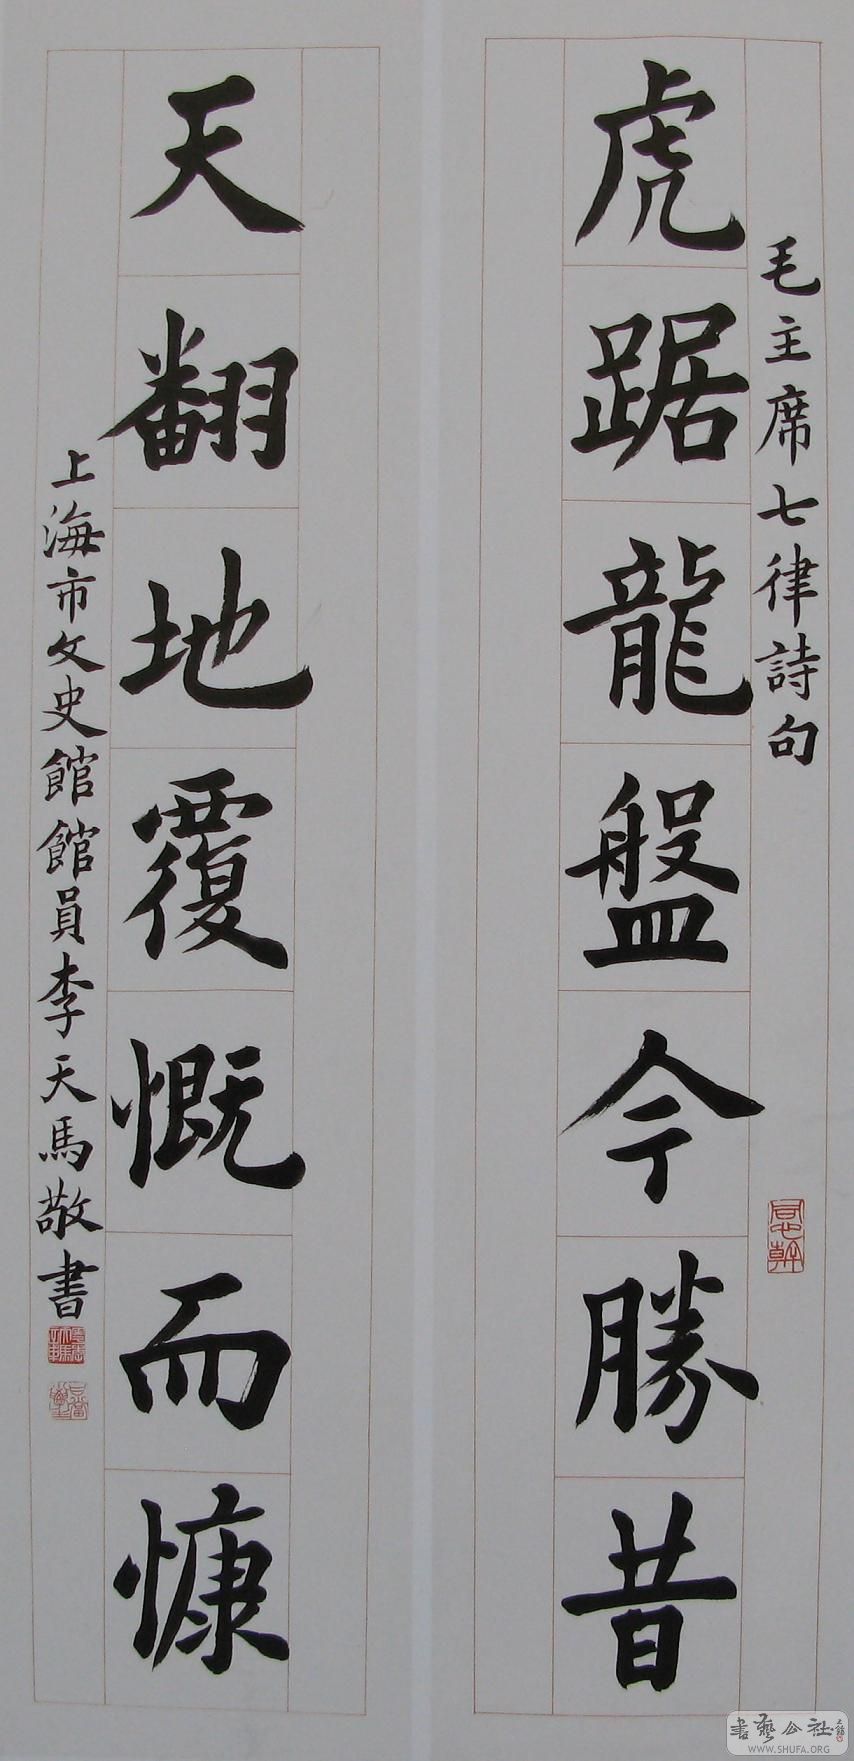 毛主席七律詩句
虎踞龍盤今勝昔
天翻地覆慨而慷
上海市文史館館員李天馬敬書
書藝公社
WWW.SHUFA.ORG